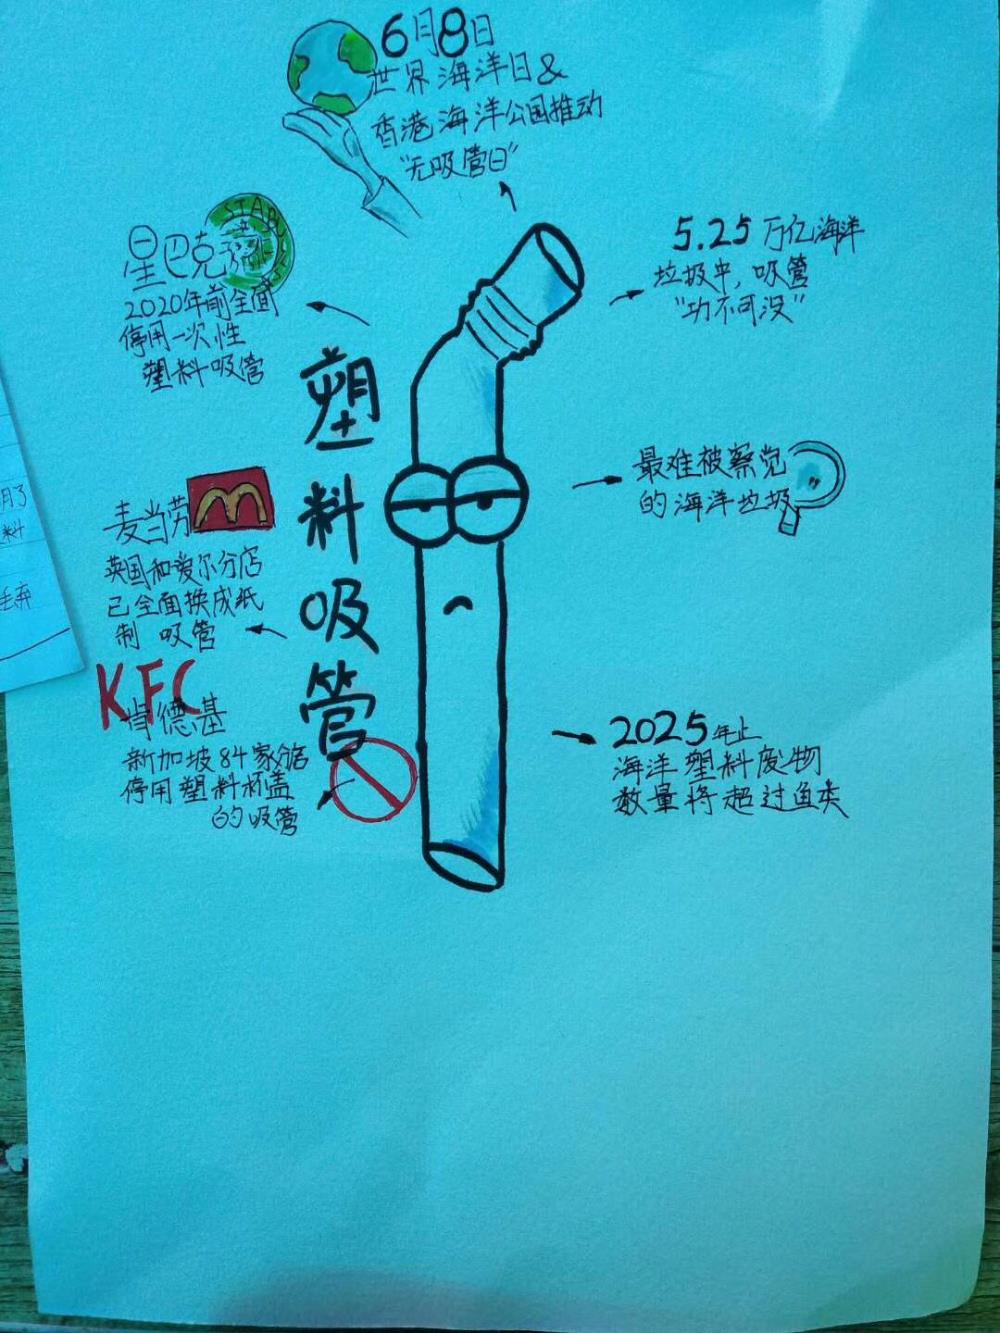 6月8日
世界海洋日&
香港海洋公园推动
"无吸管日"
星巴克
2020年前全面
停用一次性
塑料吸管
5.25万亿海洋
垃圾中,吸管
"功不可没"
塑料吸管
最难被察觉
的海洋垃圾
麦当劳
英国和爱尔分店
已全面换成纸
制吸管
KFC
肯德基
新加坡84家分店
停用塑料杯盖
的吸管
2025年止
海洋塑料废物
数量将超过鱼类
料
丢弃